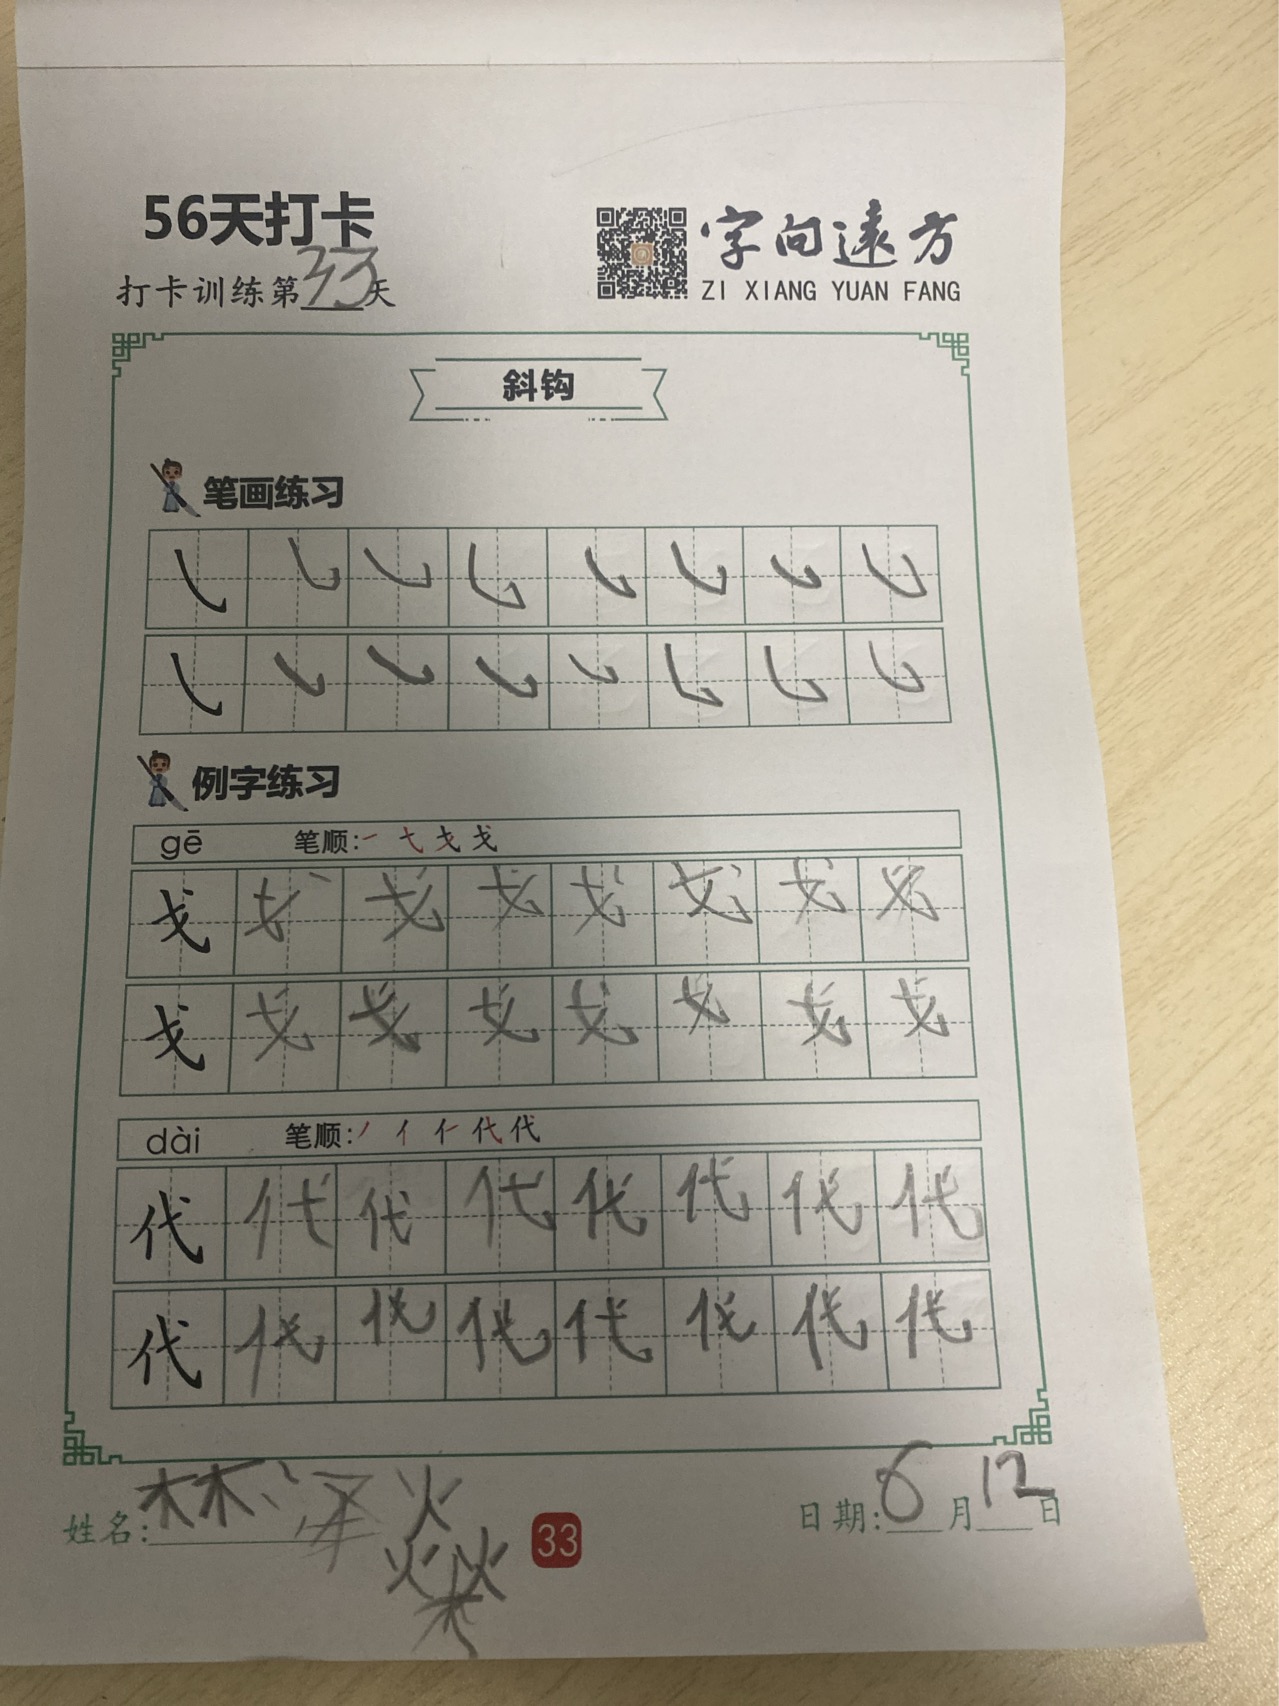 56天打卡
打卡训练第33天
字向遠方
ZI XIANG YUAN FANG
斜钩
笔画练习
㇂㇂㇂㇂㇂㇂㇂㇂
㇂㇂㇂㇂㇂㇂㇂㇂
例字练习
gē 笔顺:一 弋 戈 戈
戈戈戈戈戈戈戈戈
戈戈戈戈戈戈戈戈
dài 笔顺:丿 亻 仁 代 代
代代代代代代代代
代代代代代代代代
姓名:林泽燊
日期:6月12日
33